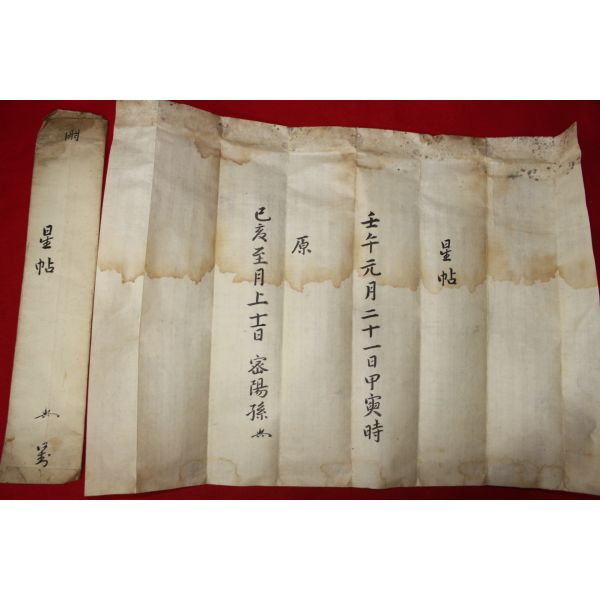 星帖
壬午元月二十一日甲寅時
原
己亥至月上十二日 密陽孫
星帖